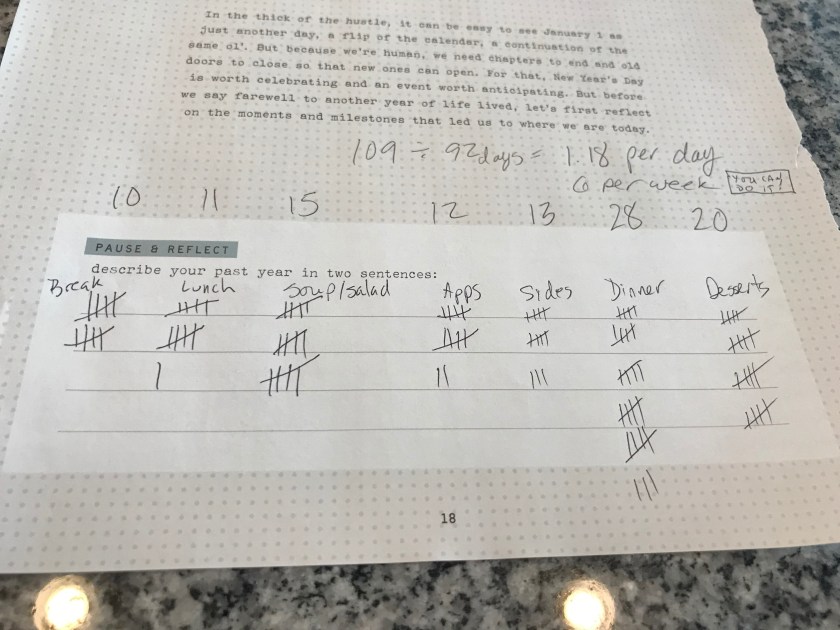 In the thick of the hustle, it can be easy to see January 1 as
just another day, a flip of the calendar, a continuation of the
same ol'. But because we're human, we need chapters to end and old
doors to close so that new ones can open. For that, New Year's Day
is worth celebrating and an event worth anticipating. But before
we say farewell to another year of life lived, let's first reflect
on the moments and milestones that led us to where we are today.
109 ÷ 92days = 1.18 per day
6 per week
YOU CAN
DO IT!
10 11 15 12 13 28 20
PAUSE & REFLECT
describe your past year in two sentences:
Break Lunch Soup/salad Apps Sides Dinner Desserts
18